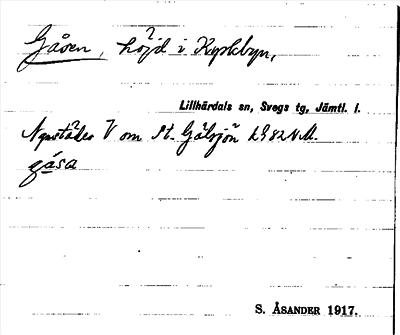 Gåsen, höjd i Kyrkbyn,
Lillhärdals sn, Svegs tg, Jämtl. l.
V om St. Gåsjön
gåsa
S. ÅSANDER 1917.